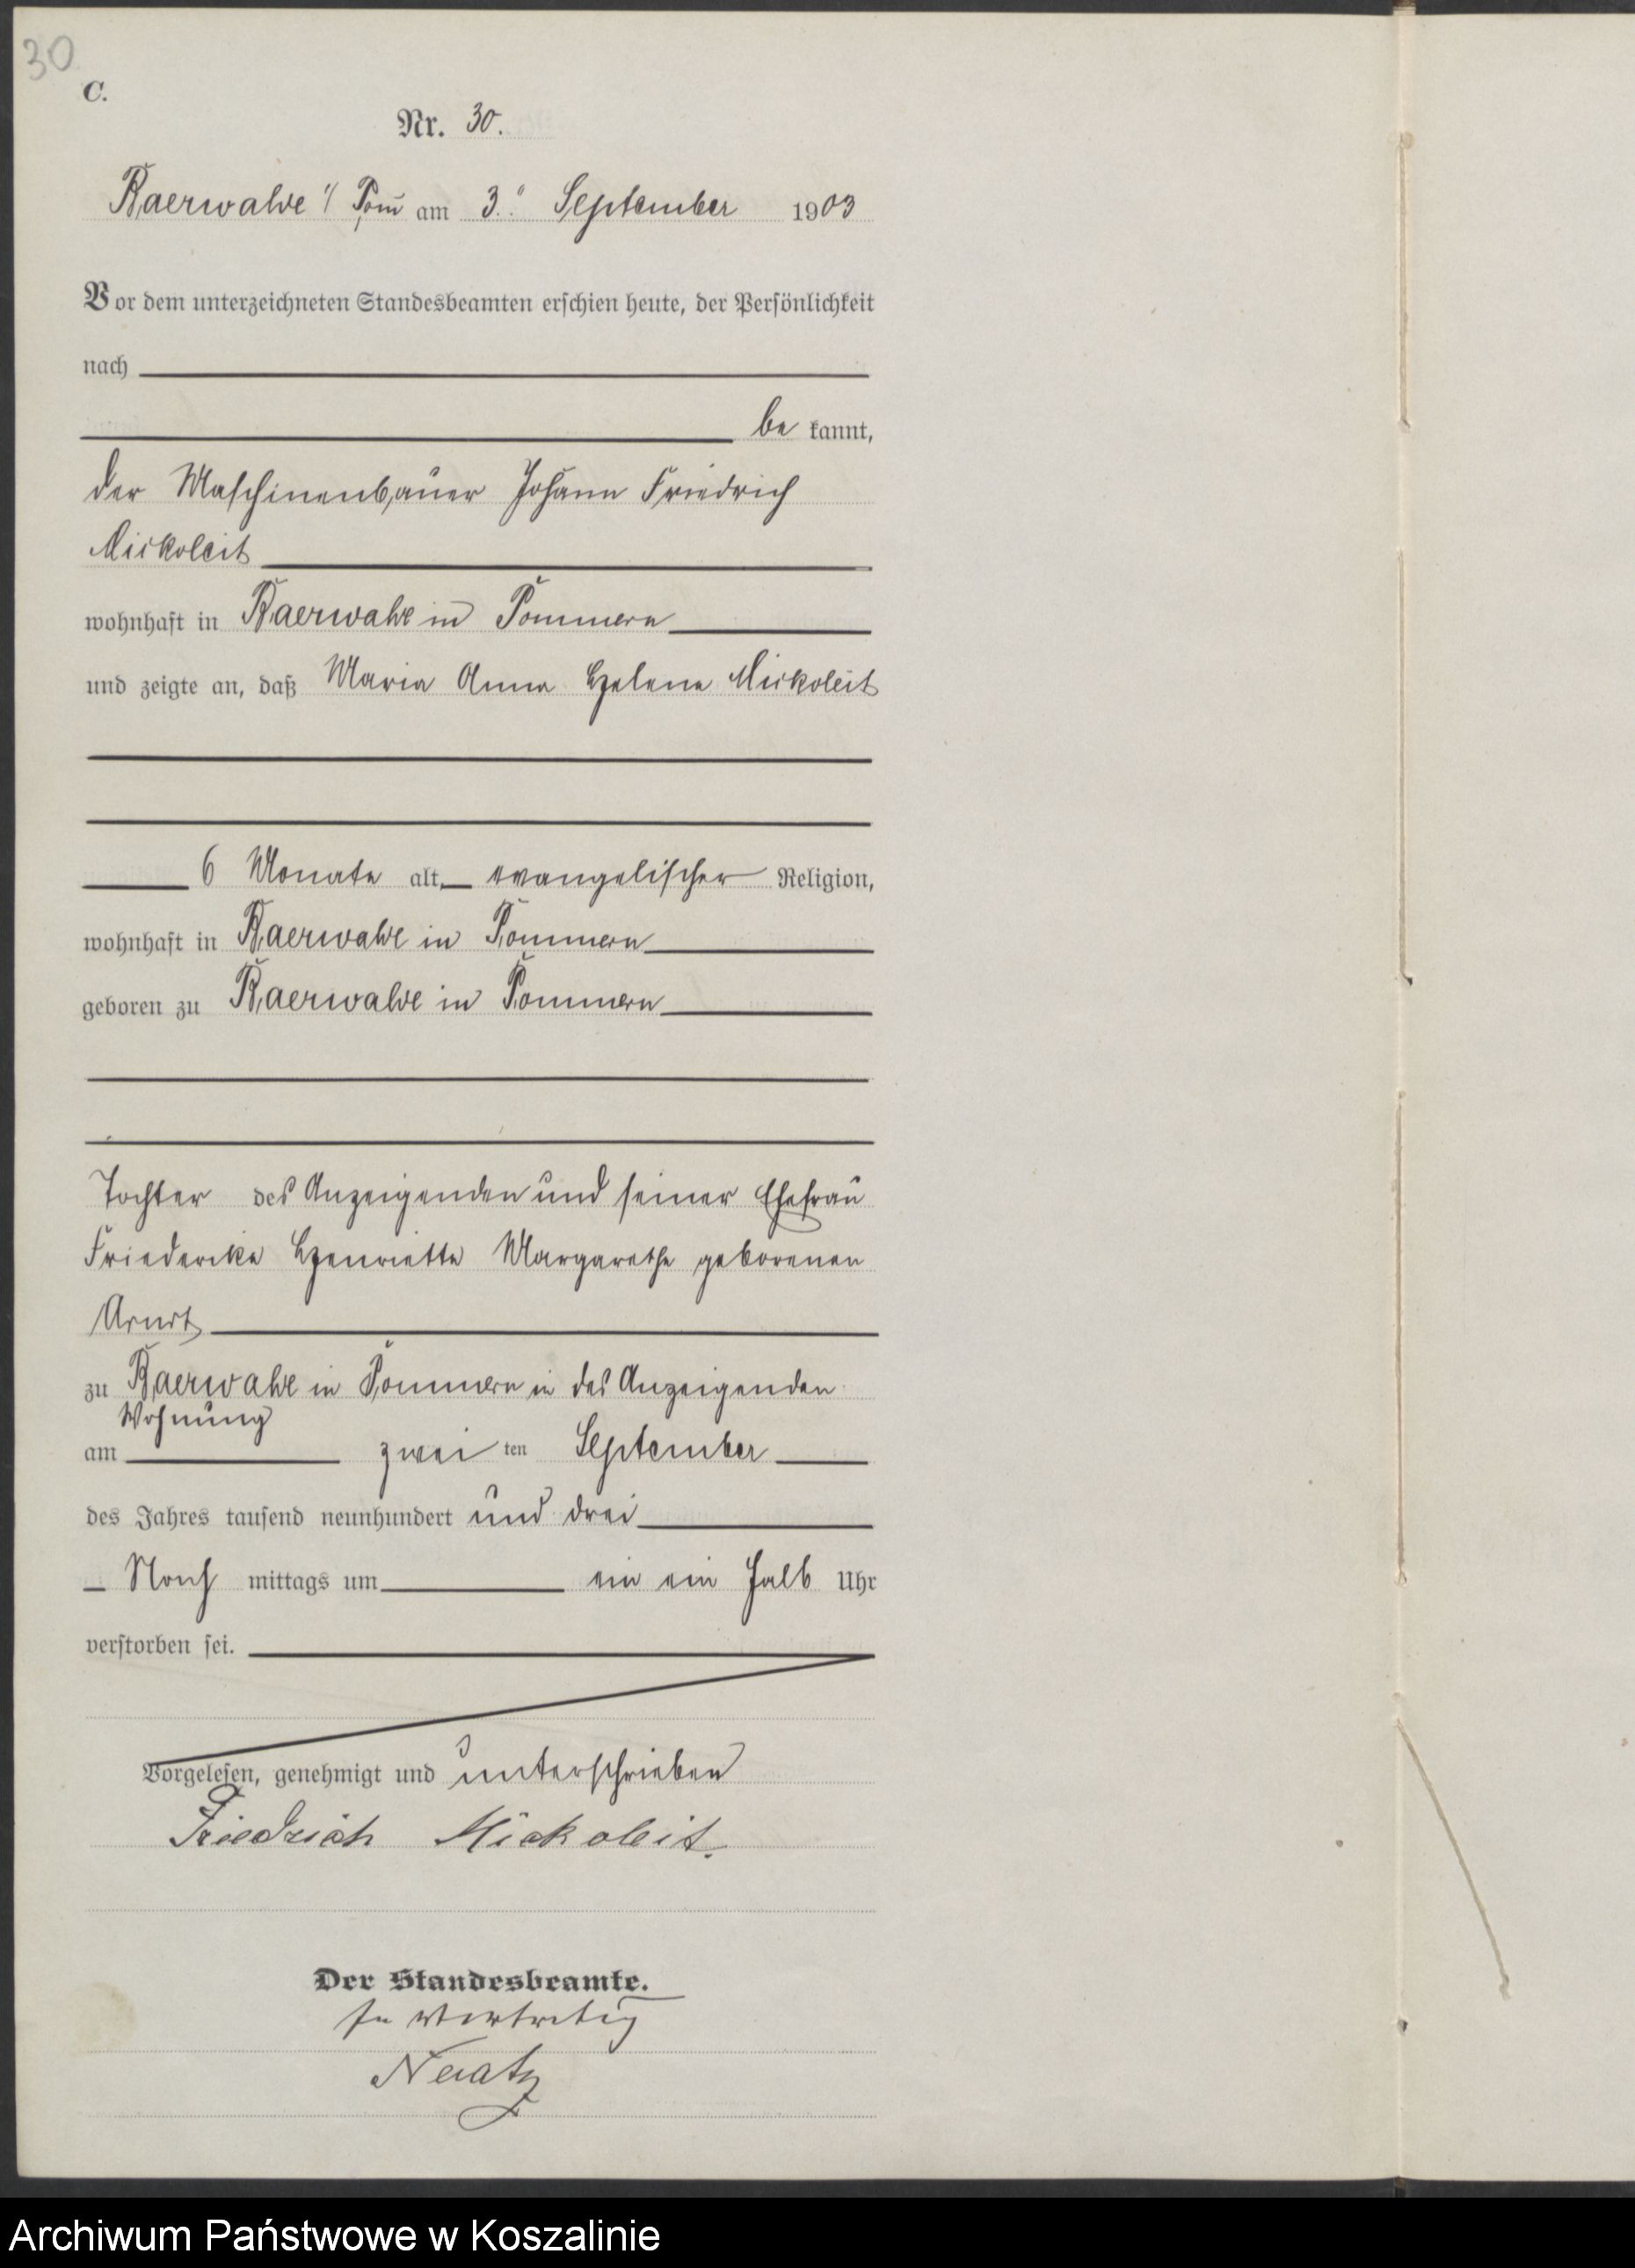 30
C.
Nr. 30.
Baerwalde i/ Pom am 3. September 1903
Vor dem unterzeichneten Standesbeamten erschien heute, der Persönlichkeit
nach
be kannt,
der Maschinenbauer Johann Friedrich
Mickoleit
wohnhaft in Baerwalde in Pommern
und zeigte an, daß Maria Anna Helene Mickoleit
6 Monate alt, evangelischer Religion,
wohnhaft in Baerwalde in Pommern
geboren zu Baerwalde in Pommern
Tochter des Anzeigenden und seiner Ehefrau
Friedericke Henriette Margarethe geborenen
Arndt
zu Baerwalde in Pommern in des Anzeigenden
Wohnung
am zwei ten September
des Jahres tausend neunhundert und drei
Nach mittags um ein ein halb Uhr
verstorben sei.
Vorgelesen, genehmigt und unterschrieben
Friedrich Mickoleit.
Der Standesbeamte.
In Vertretung
Archiwum Państwowe w Koszalinie